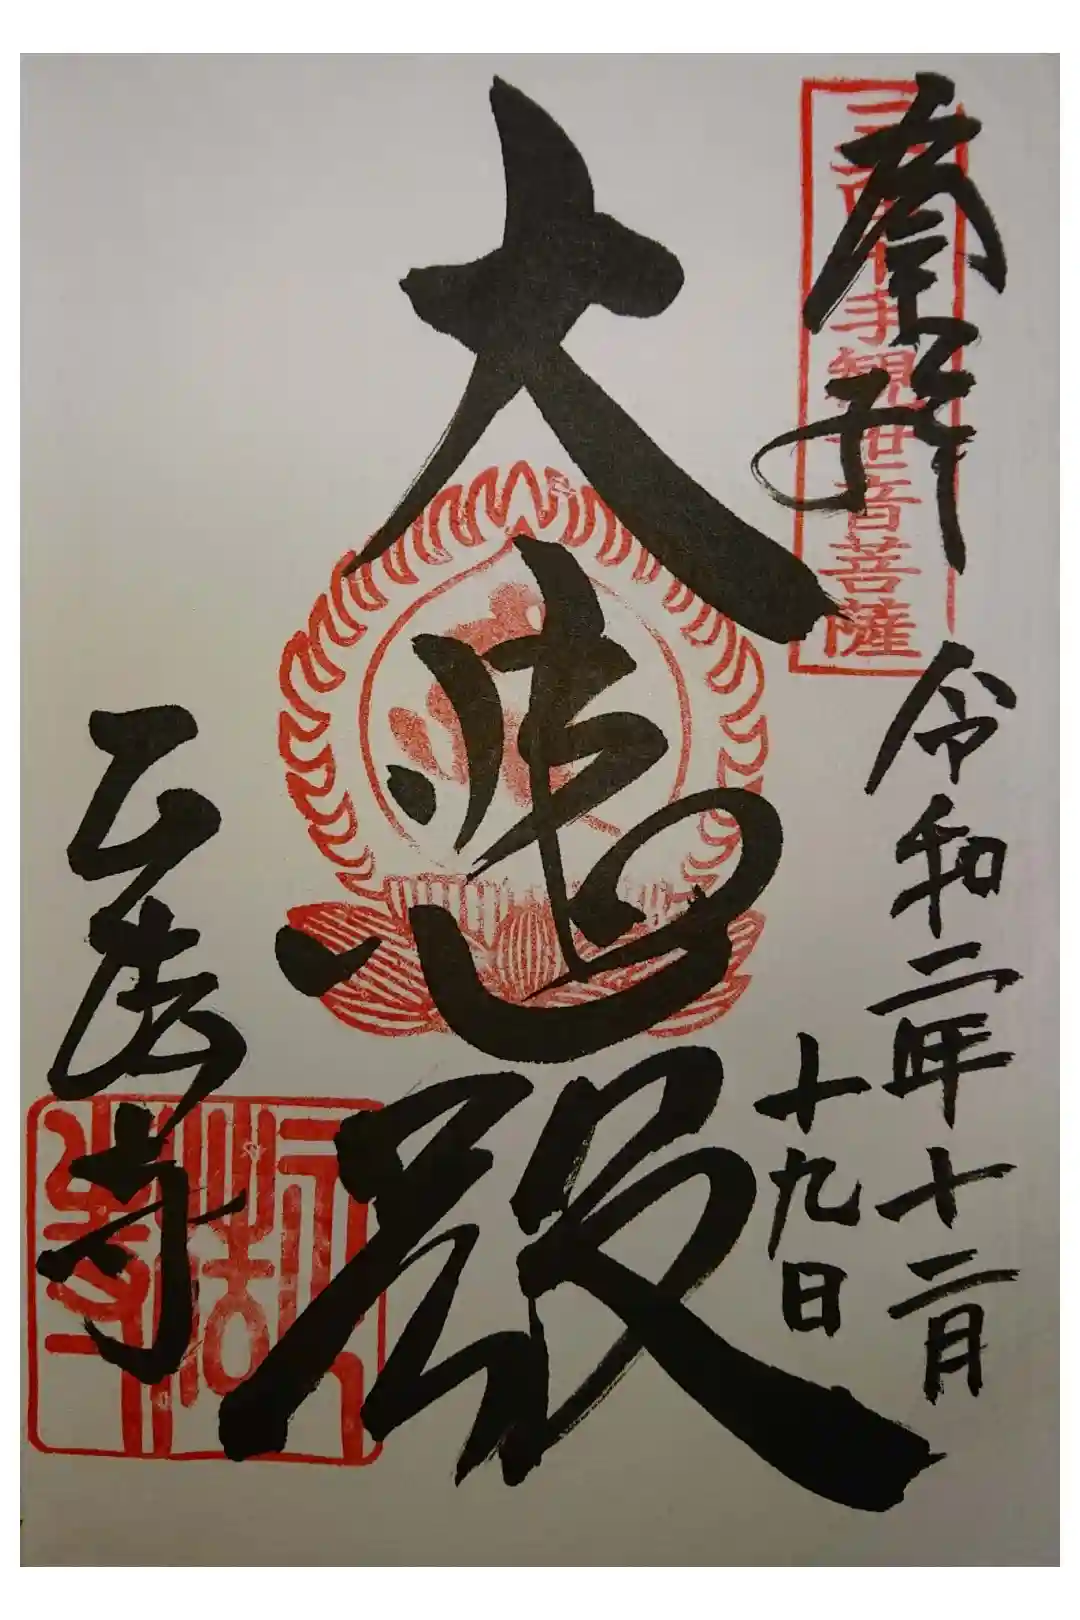 三面千手観世音菩薩
奉拝
令和二年十二月
十九日
大悲殿
正法寺